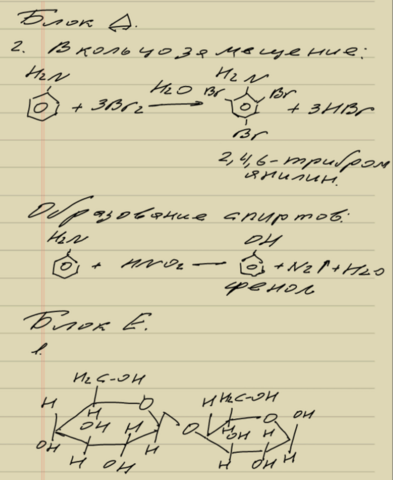 Блок Д.
2. В кольцо замещение:
H₂N H₂N
+ 3Br₂ H₂O → Br Br + 3HBr
Br
2,4,6-трибром
янилин.
Образование спиртов:
H₂N OH
+ HNO₂ — + N₂↑ + H₂O
фенол
Блок Е.
1.
H₂C-OH
H O H H₂C-OH O OH
H OH H O H OH H
OH H H
H OH H OH